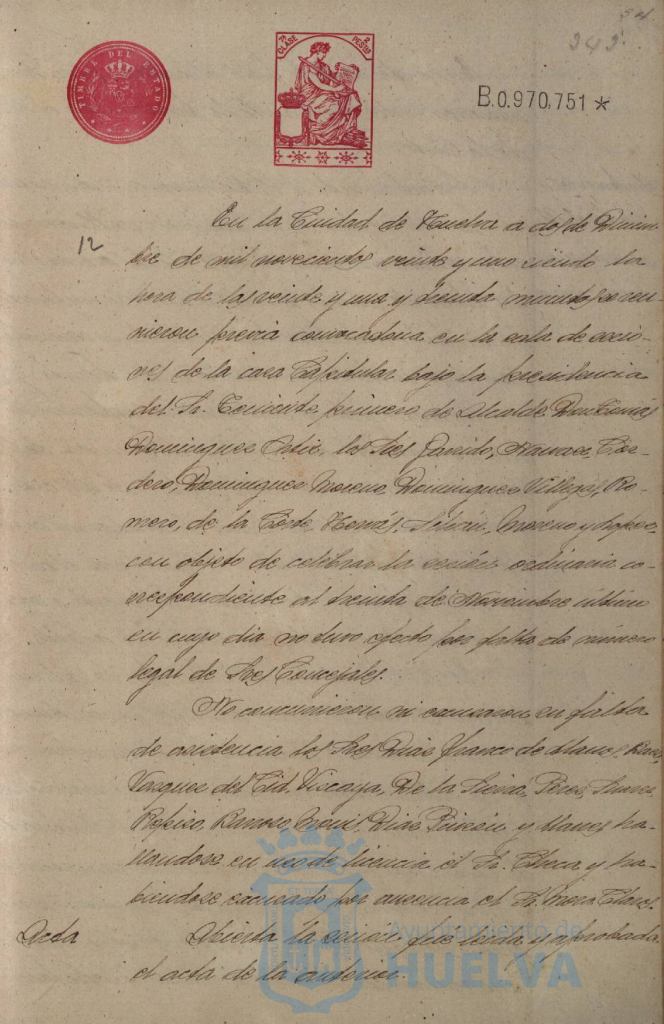 TIMBRE DEL ESTADO
7ª CLASE 2 PESETAS
242
B.0.970,751 *
12
En la Ciudad de Huelva a dos de Diciem-
bre de mil novecientos veinte y uno siendo la
hora de las veinte y una y treinta minutos se reu-
nieron previa convocatoria en la sala de sesio-
nes de la casa Capitular bajo la presidencia
del Sr. Teniente primero de Alcalde Don Tomás
Dominguez Ortiz, los Sres Garrido, Narvaez, Cor-
dero, Dominguez Moreno, Dominguez Villegas, Ro-
mero, de la Corte, Tomás, Moreno y
con objeto de celebrar la sesión ordinaria co-
rrespondiente al treinta de Noviembre último
en cuyo dia no tuvo efecto por falta de número
legal de Sres Concejales.
No concurrieron ni excusaron su falta
de asistencia los Sres Diaz Franco de Llanos,
Vazquez del Cid, Vizcaya, De la Sierra, Perez, Suarez
Diaz Pinzón y Llanes ha-
llandose en uso de licencia el Sr. Checa y ha-
biendose excusado por ausencia el Sr. Mora Claros.
Acta
Abierta la sesión fue leida y aprobada
el acta de la anterior.
Ayuntamiento de
HUELVA